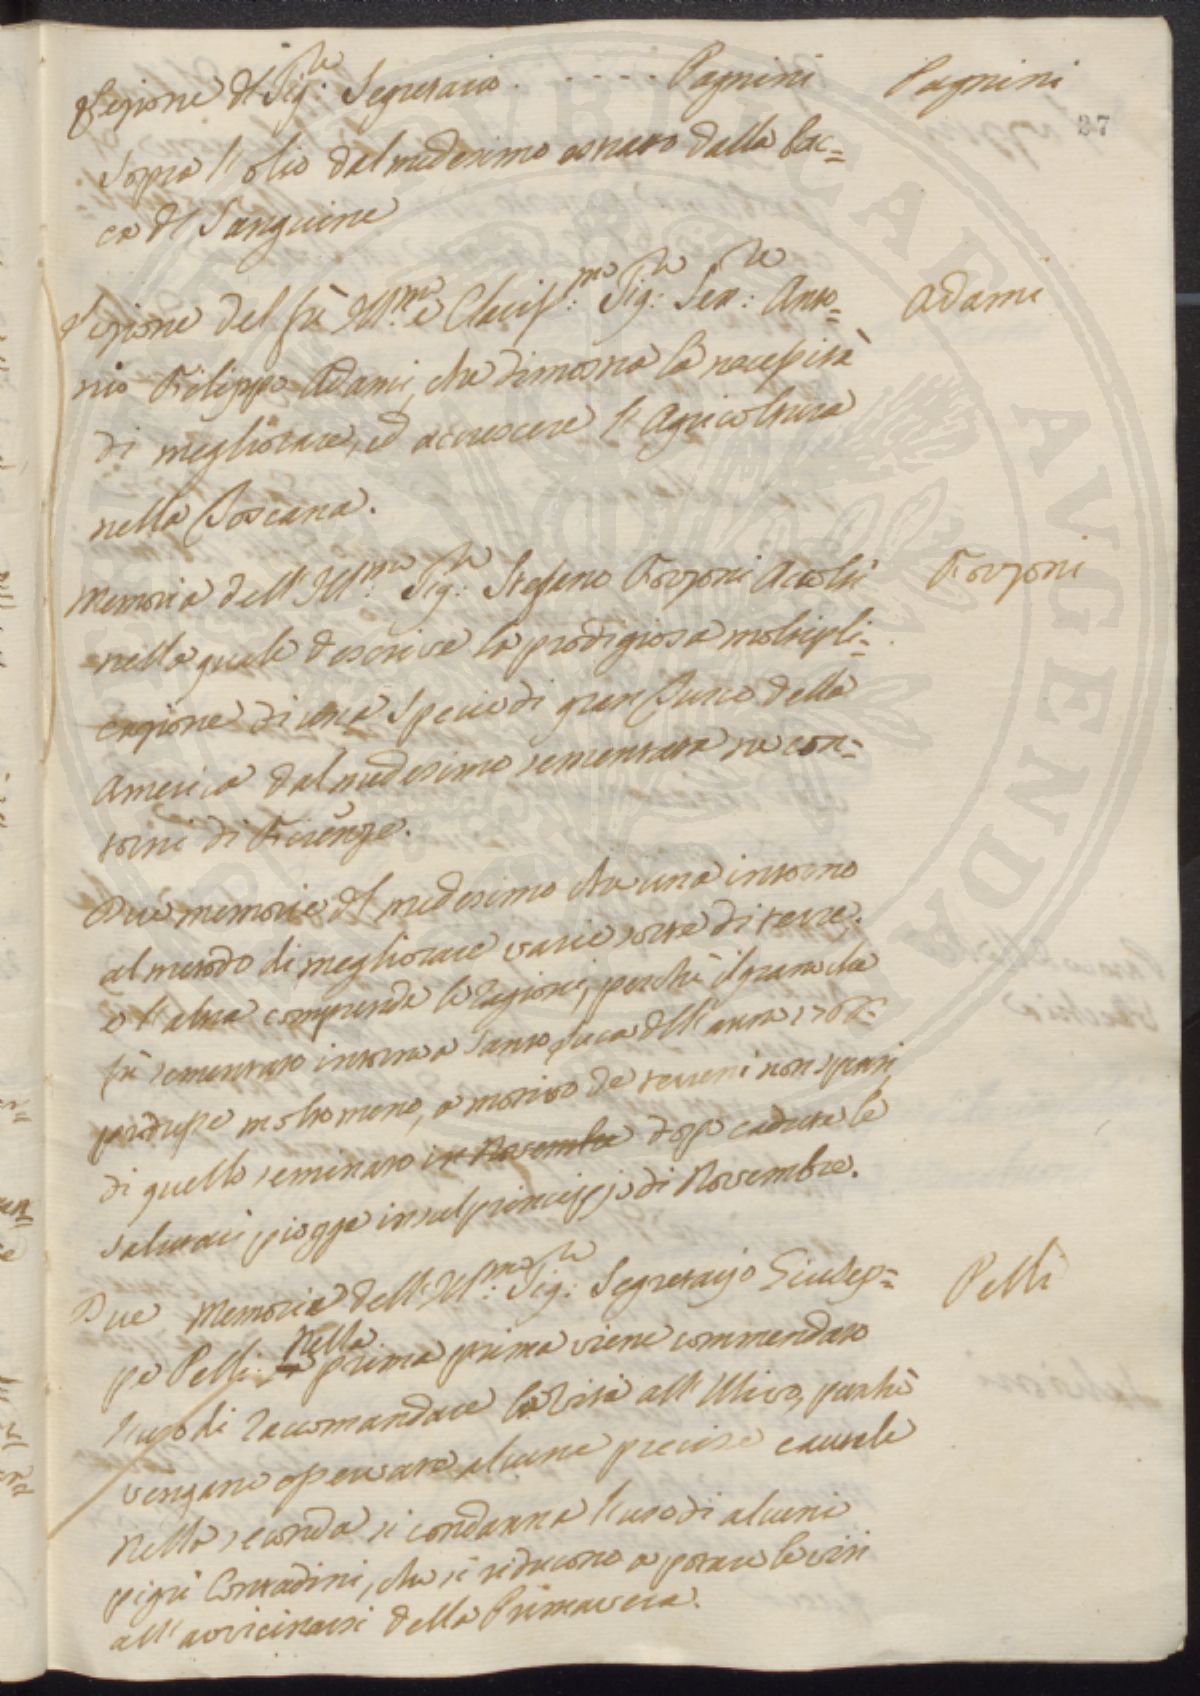 Lezione del Sig:re Segretario . . . . . Pagnini
Pagnini
37
Sopra l'olio dal medesimo estratto dalla bac=
ca del Sanguine
Lezione del fù Ill:mo e Clariss:mo Sig:re Sen:re Anto=
Adami
nio Filippo Adami, che dimostra la necessità
di megliorare, ed accrescere l'Agricoltura
nella Toscana.
Memoria dell'Ill:mo Sig:re Stefano Forzoni Accolti
Forzoni
nella quale descrive la prodigiosa moltipli=
cazione di una Specie di gran Turco della
America dal medesimo sementata ne con=
torni di Firenze.
Due memorie del medesimo che una intorno
al metodo di megliorare varie sorte di terre.
e l'altra comprende le ragioni, perchè il grano che
fù sementato intorno a Santo Luca dell'anno 1766.
produsse molto meno, a motivo de terreni non spenti,
di quello seminato in Novembre dopo cadute le
salutari piogge in sul principio di Novembre.
Due Memorie dell'Ill:mo Sig:re Segretario Giusep=
Pelli
pe Pelli. Nella prima prima viene commendato
l'uso di raccomandare la Vite all'Ulivo, purchè
vengano osservate alcune precise cautele
Nella seconda si condanna l'uso di alcuni
pigri Contadini, che si riducono a potare le viti
all'avvicinarsi della Primavera.
PUBLICAE AUGENDAE